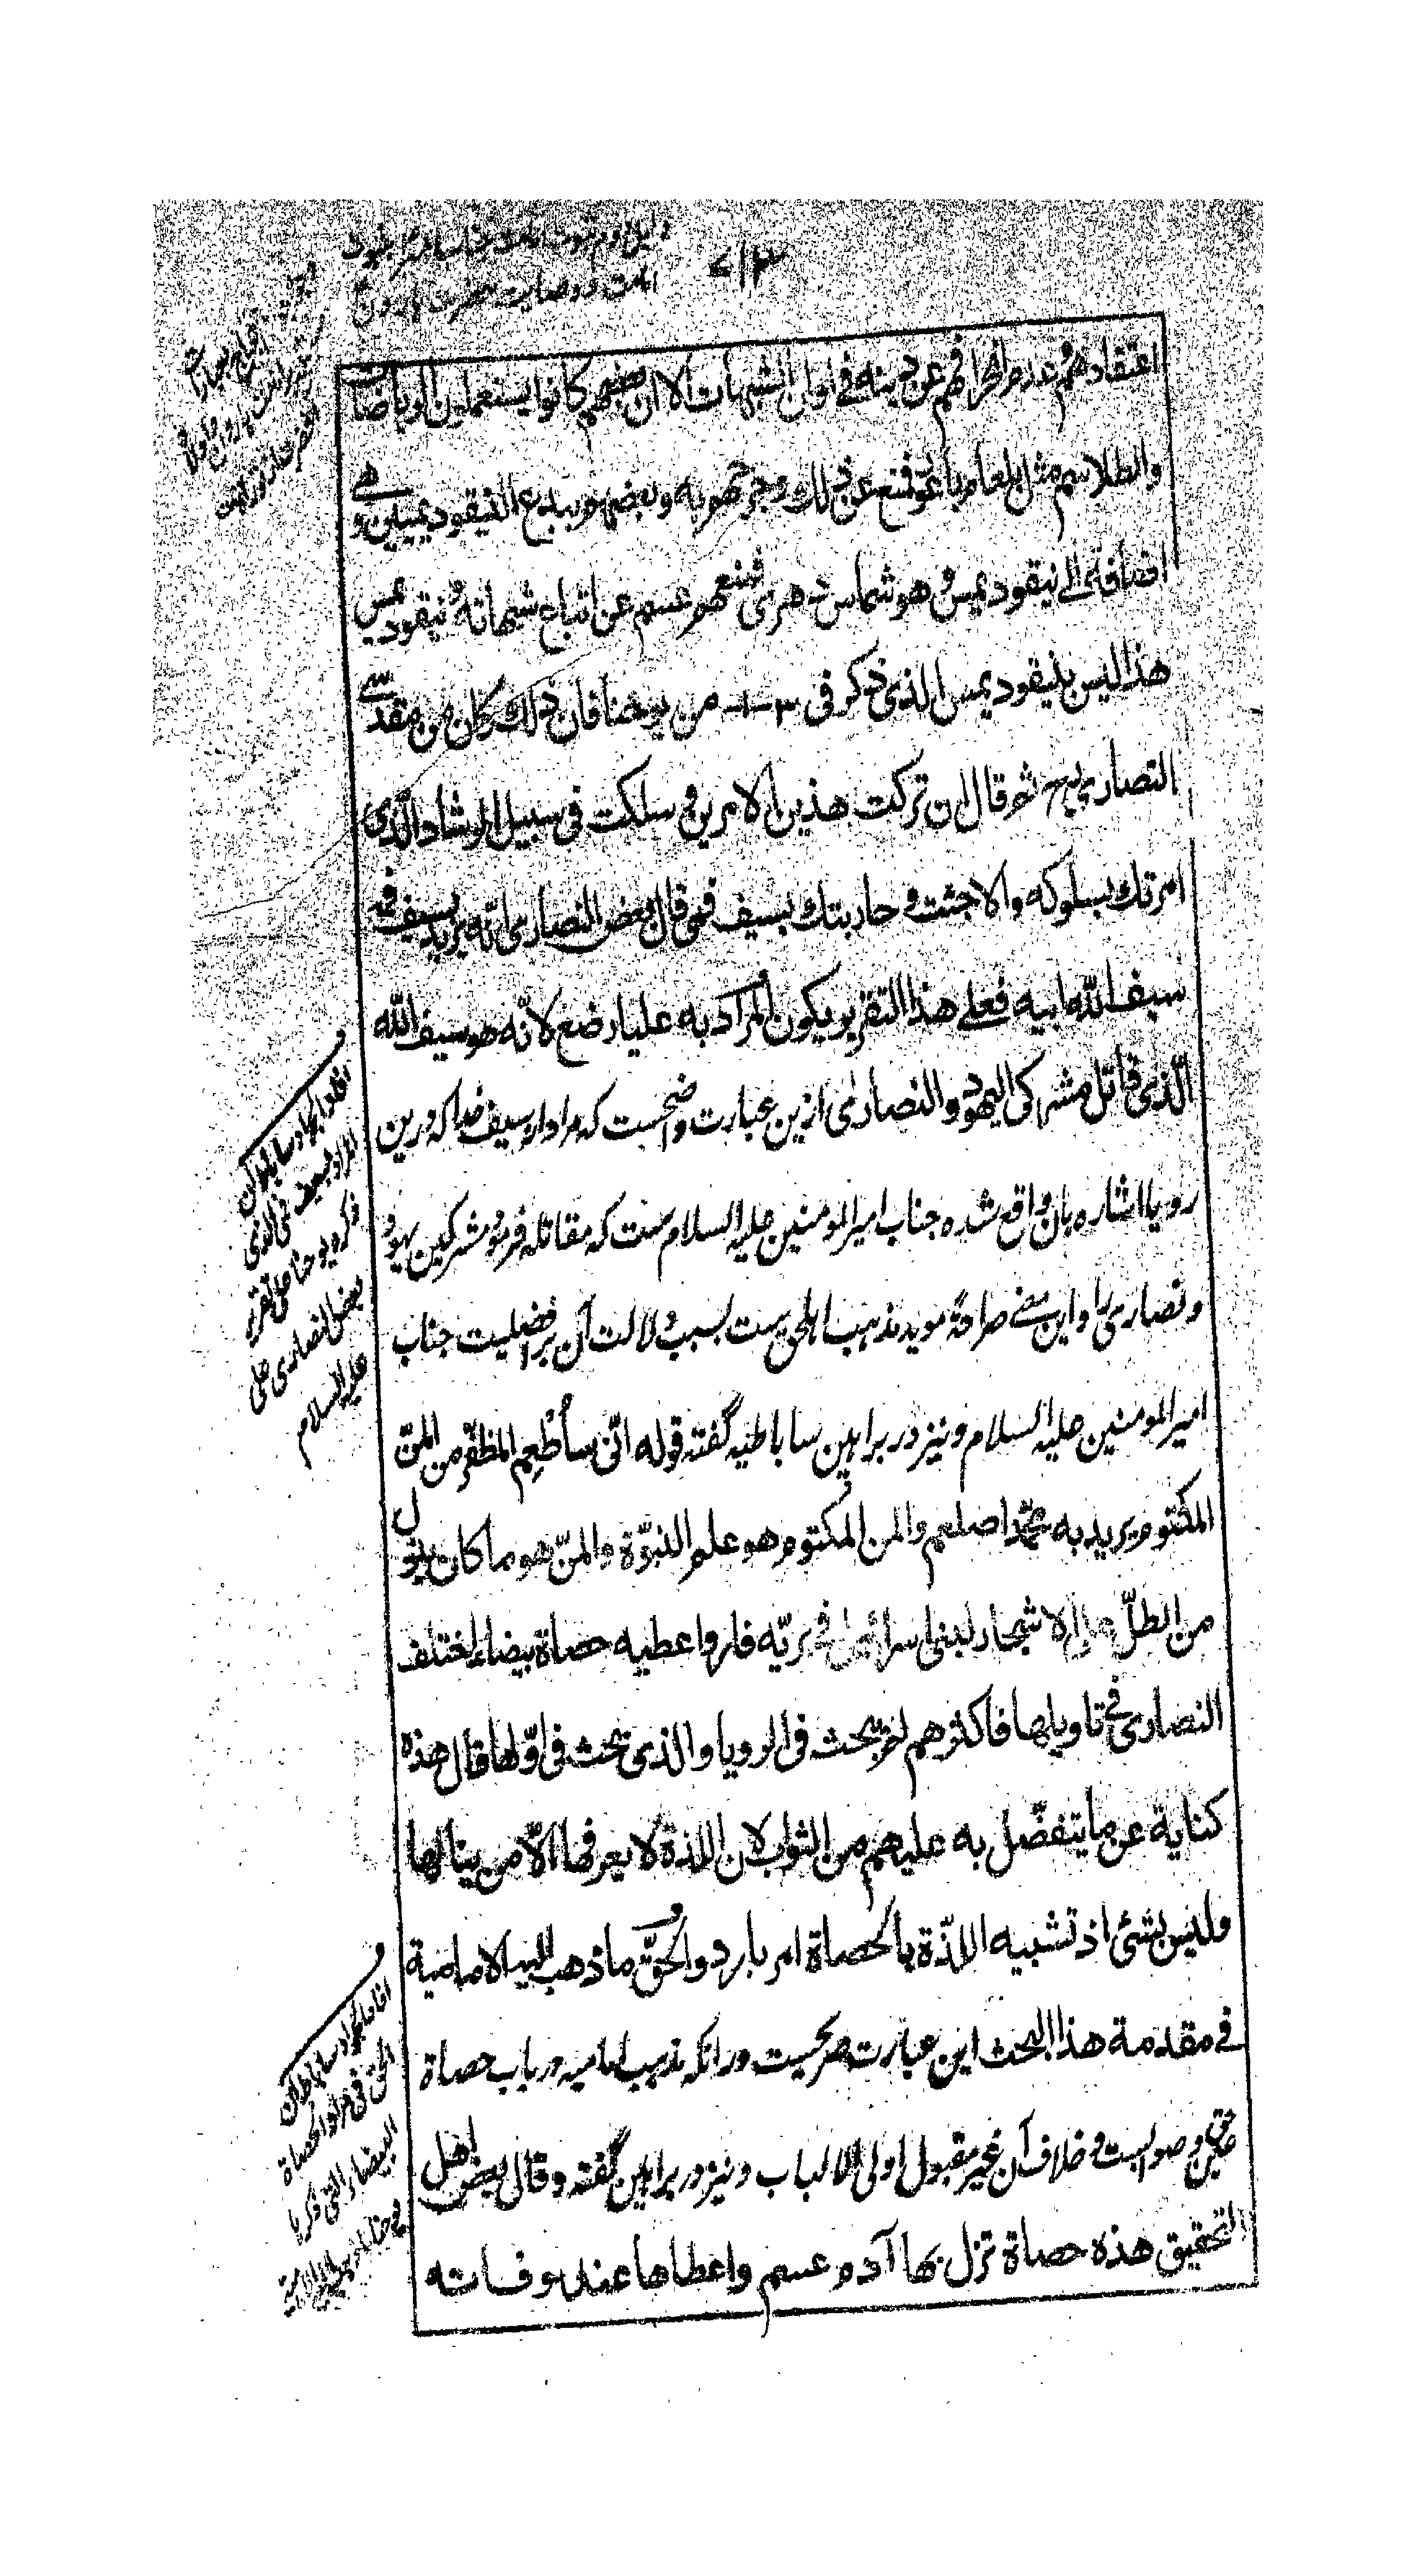 ۷۱۳
اعتقادهم وعدم انحرافهم عن دينه فى اوان الشبهات الا ان بعضهم كانوا يستعملون الرياضات
والطلاسم مثل بلعام باعور فمنع عن ذلك وبعضهم ببدع النيقوديميين وهى
اضافة الے نيقوديمس وهو شماس دهرى فمنعهم عسم عن اتباع شبهاته ونيقوديمس
هذا ليس بنيقوديمس الذى ذكر فى ٣ ١ من يوحنا فان ذلك كان من مقدسے
النصارى ثم قال ان تركت هذين الامرين وسلكت فى سبيل الرشاد الذى
امرتك بسلوكه والا جئت وحاربتك بسيف فمى قال بعض النصارى انّه يريد بسيف فيه
سيف الله ابيه فعلے هذا التقرير يكون المراد به عليا رضع لانّه هو سيف الله
الّذى قاتل مشركى اليهود والنصارى ازين عبارت واضحست كه مراد از سيف خدا كه درين
رويا اشاره بان واقع شده جناب اميرالمومنين عليه السلام ست كه مقاتله فرموده مشركين يهود
ونصارى را واين معنے صراحةً مويد مذهب اهل حق ست بسبب دلالت آن بر افضليت جناب
اميرالمومنين عليه السلام ونيز در براهين ساباطيه گفته قوله انّى سأُطْعِم المظفّر من المنّ
المكتوم يريد به محمّدا صلعم والمن المكتوم هو علم النبوّة والمنّ هو ما كان ينزل
من الطلّ على الاشجار لبنى اسرائيل فى بريّه فاروا عطيه حصاة بيضاء اختلف
النصارى فى تاويلها فاكثرهم لم يبحث فى الرويا والذى بحث فى اوّلها قال هذه
كناية عن ما يتفضّل به عليهم من الثواب لان اللذة لا يعرفها الّا من ينالها
وليس بشئ اذ تشبيه اللذّة بالحصاة امر بارد والحقّ ما ذهب اليه الامامية
فى مقدمة هذا البحث اين عبارت صريحست در انكه مذهب اماميه در باب حصاة
عين حق وصوابست وخلاف آن غير مقبول اولى الالباب ونيز در براهين گفته وقال بعض اهل
التحقيق هذه حصاة نزل بها آدم عسم واعطاها عند وفاته
افاد الجواد ساباط ان
المراد بسيف فمى الذى
ذكره يوحنا على تقرير
بعض النصارى على
عليه السلام
افاد الجواد ساباط ان
الحق فى مراد الحصاة
البيضاء التى ذكرها